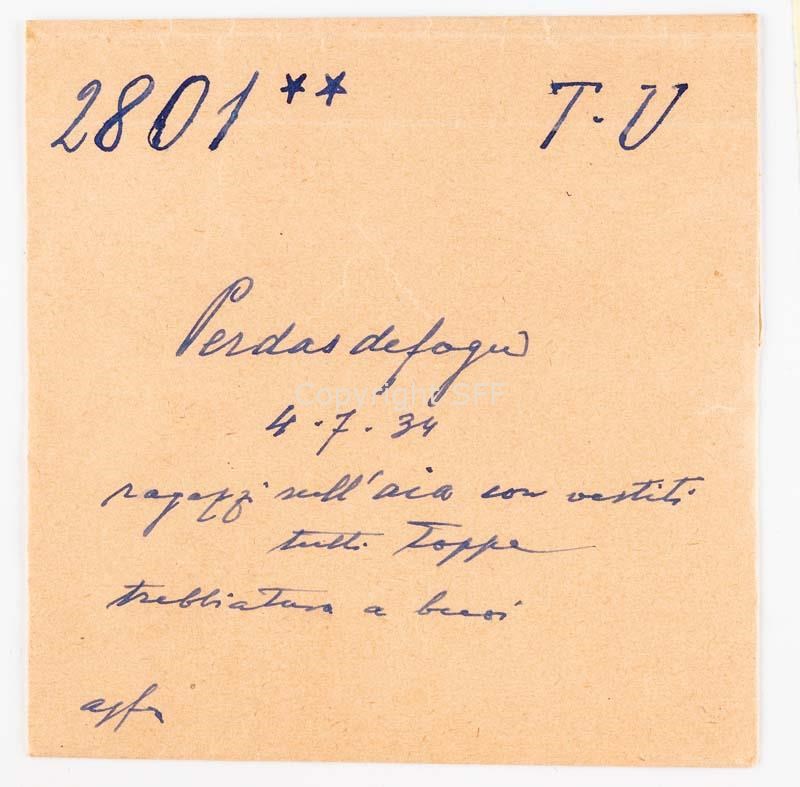 2801 ** T. U
Perdasdefogu
Copyright SFF
4.7.34
ragazzi sull'aia con vestiti
tutti Toppe
trebbiatura a buoi
agfa